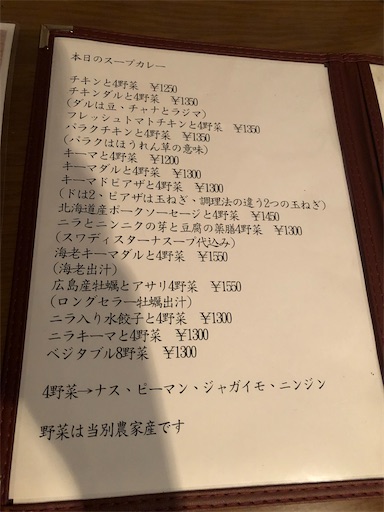 本日のスープカレー
チキンと4野菜 ¥1250
チキンダルと4野菜 ¥1350
(ダルは豆・チャナとラジマ)
フレッシュトマトチキンと4野菜 ¥1350
パラクチキンと4野菜 ¥1350
(パラクはほうれん草の意味)
キーマと4野菜 ¥1200
キーマダルと4野菜 ¥1300
キーマドピアザと4野菜 ¥1300
(ドは2、ピアザは玉ねぎ、調理法の違う2つの玉ねぎ)
北海道産ポークソーセージと4野菜 ¥1450
ニラとニンニクの芽と豆腐の薬膳4野菜 ¥1300
(スワディスターナスープ代込み)
海老キーマダルと4野菜 ¥1550
(海老出汁)
広島産牡蠣とアサリ4野菜 ¥1550
(ロングセラー牡蠣出汁)
ニラ入り水餃子と4野菜 ¥1300
ニラキーマと4野菜 ¥1300
ベジタブル8野菜 ¥1300
4野菜→ナス、ピーマン、ジャガイモ、ニンジン
野菜は当別農家産です